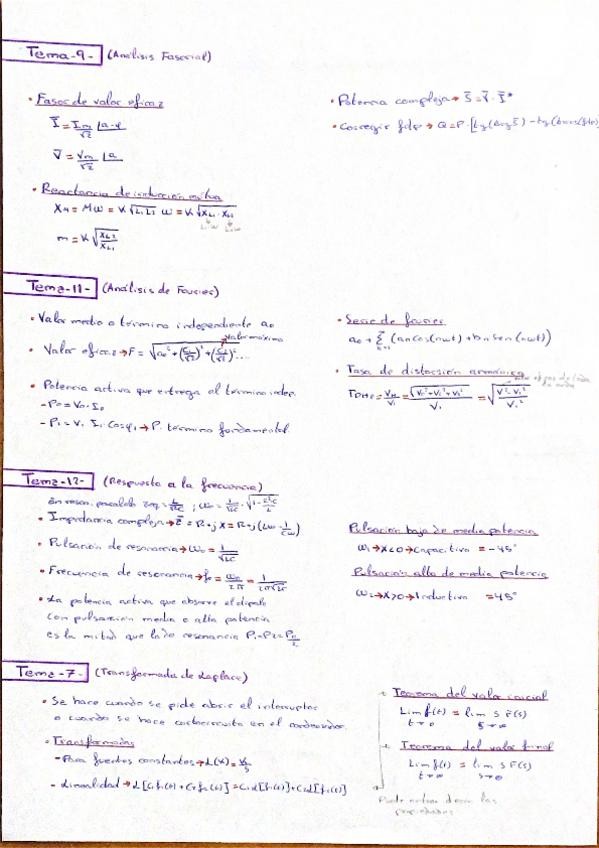 Tema-9- (Análisis Fasorial)
• Fasor de valor eficaz
Ī = Im/√2 ∠α-φ
V̄ = Vm/√2 ∠α
• Reactancia de inducción mútua
XM = Mω = K√L1L2 ω = K√XL1·XL2
L1ω L2ω
m = K√XL2/XL1
• Potencia compleja → S̄ = V̄·Ī*
• Corregir fdp → Q = P·[tg(Arg S̄) - tg(arcos(fdp)
Tema-11- (Análisis de Fourier)
• Valor medio o término independiente ao
valor máximo
• Valor eficaz → F = √ao²+(C1/√2)²+(C2/√2)²...
• Potencia activa que entrega el término indep.
- Po = Vo·Io
- P1 = V1·I1·Cosφ1 → P. término fundamental
• Serie de fourier
ao + Σ (an cos(nωt) + bn sen(nωt))
n=1
• Tasa de distorsión armónica
valor eficaz de toda
TDHF = VH/V1 = √Vo²+V2²+V3²/V1 = √V²-V1²/V1²
Tema-12- (Respuesta a la frecuencia)
En reson. paralelo Zeq = L/RC ; ωo = 1/√LC · √1-R²C/L
• Impedancia compleja → Z̄ = R+jX = R+j(Lω-1/Cω)
• Pulsación de resonancia → ωo = 1/√LC
• Frecuencia de resonancia → fo = ωo/2π = 1/2π√LC
• La potencia activa que absorve el dipolo
con pulsación media o alta potencia
es la mitad que la de resonancia P1=P2=Po/2
Pulsación baja de media potencia
ω1 → X<0 → Capacitiva = -45°
Pulsación alta de media potencia
ω2 → X>0 → Inductiva = 45°
Tema-7- (Transformada de Laplace)
• Se hace cuando se pide abrir el interruptor
o cuando se hace cortocircuito en el condensador.
• Transformadas
- Para fuentes constantes → L(K) = K/s
- Linealidad → L[C1f1(t)+C2f2(t)] = C1L[f1(t)]+C2L[f2(t)]
Teorema del valor inicial
Lim f(t) = lim s F(s)
t→0 s→∞
• Teorema del valor final
Lim f(t) = lim s F(s)
t→∞ s→0
Puede entrar decir las
propiedades